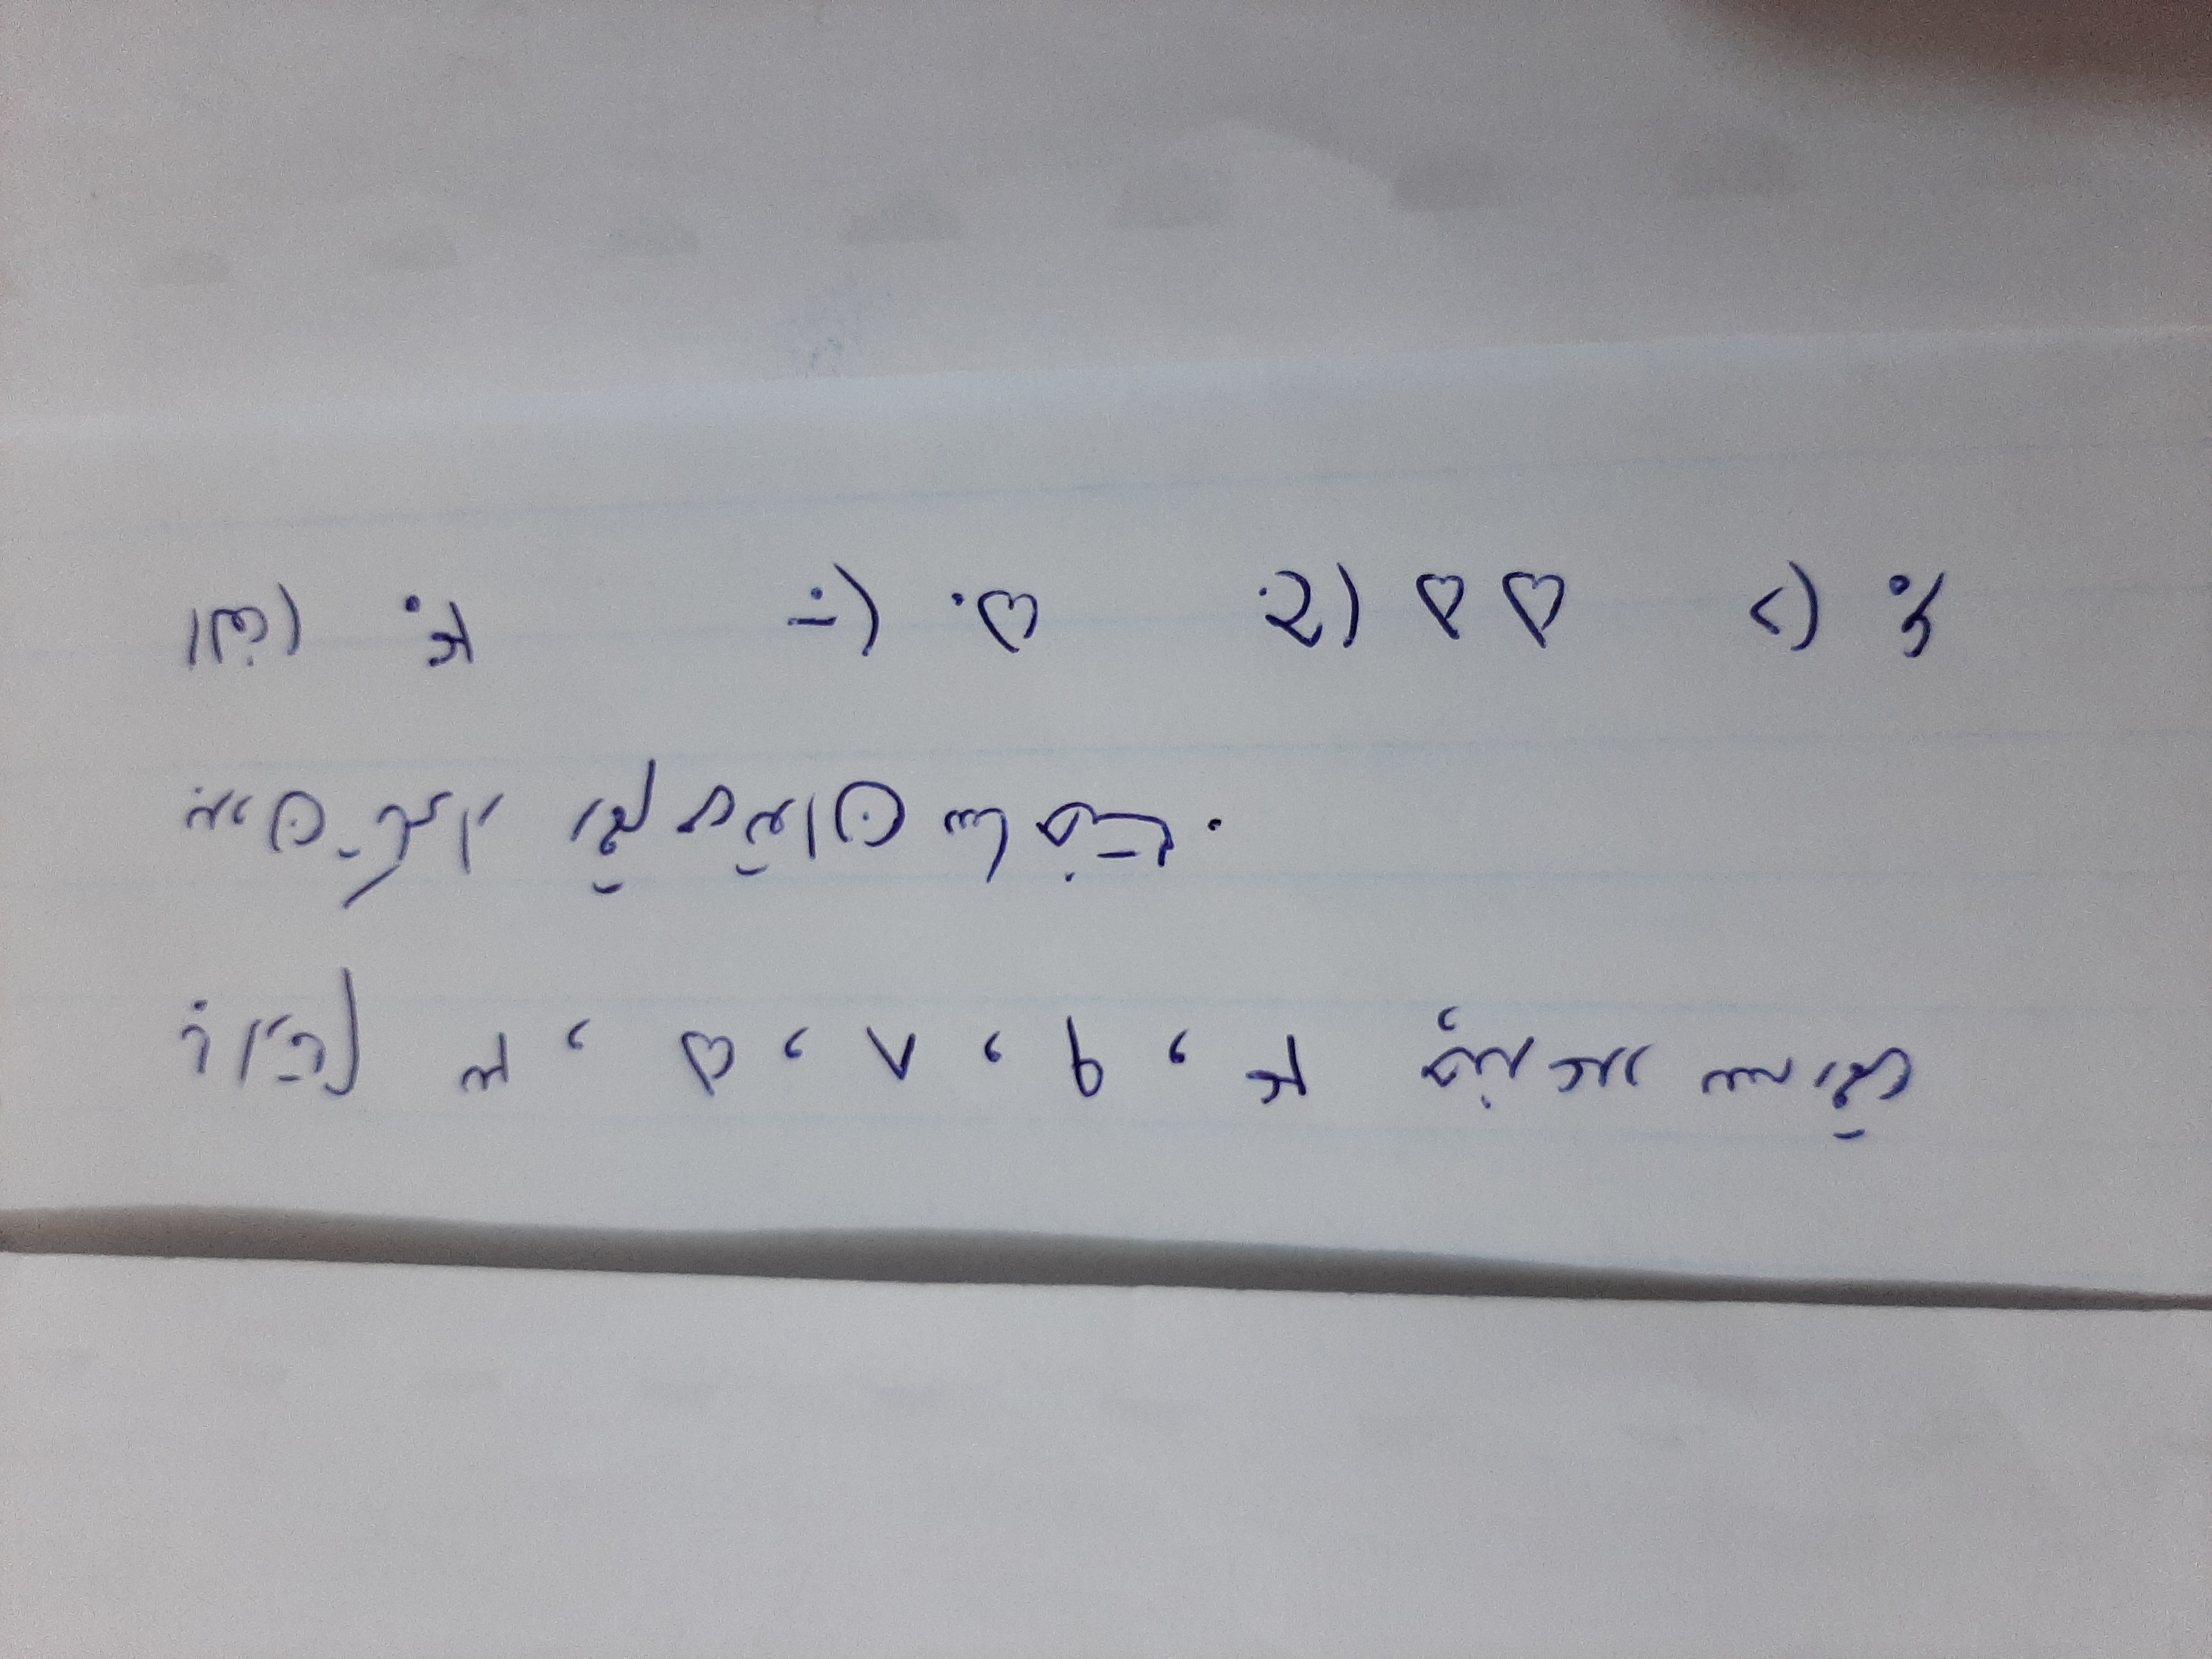 با ارقام ۳ , ۵ , ۸ , ۹ , ۴ چند عدد سه رقمی
بدون تکرار رقم می توان ساخت .
الف) ۴۰ ب) ۵۰ ج) ۵۵ د) ۶۰